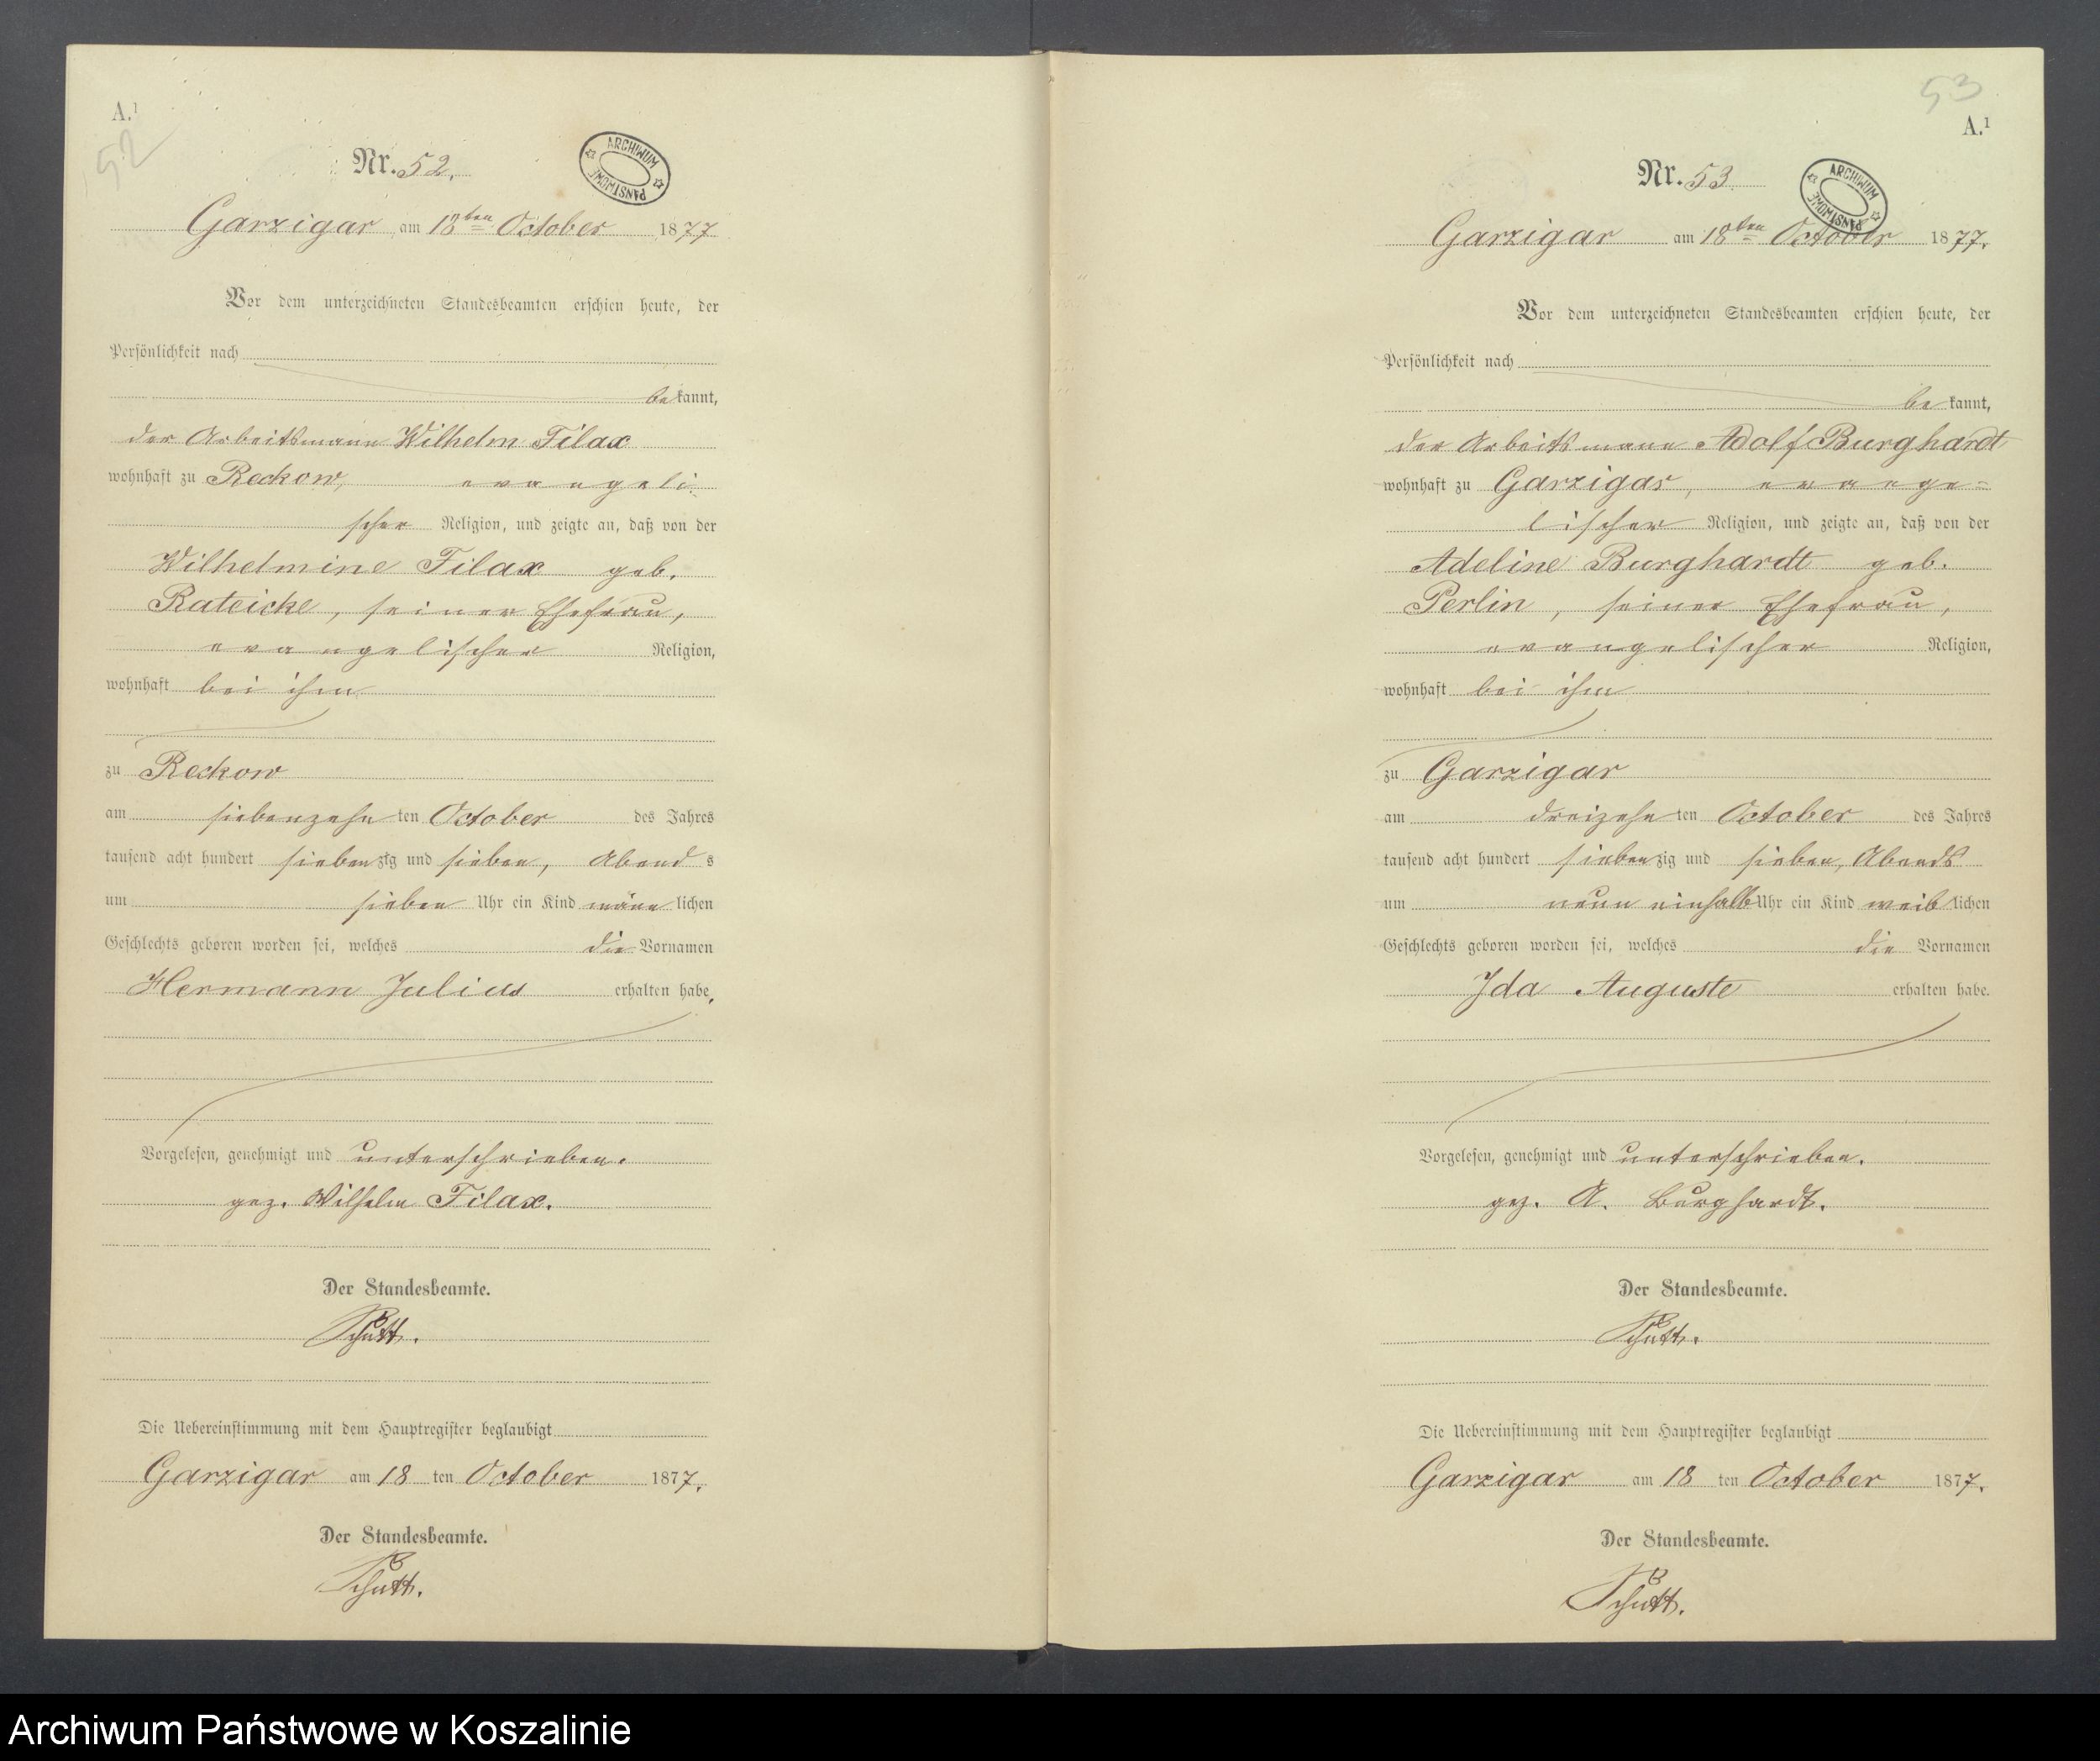 A.¹
52
Nr. 52.
ARCHIWUM PAŃSTWOWE
Garzigar am 18ten October 1877
Vor dem unterzeichneten Standesbeamten erschien heute, der
Persönlichkeit nach
bekannt,
der Arbeitsmann Wilhelm Filax
wohnhaft zu Reckow, evangeli
scher Religion, und zeigte an, daß von der
Wilhelmine Filax geb.
Rateicke, seiner Ehefrau,
evangelischer Religion,
wohnhaft bei ihm
zu Reckow
am siebenzehnten October des Jahres
tausend acht hundert siebenzig und sieben, Abends
um sieben Uhr ein Kind männlichen
Geschlechts geboren worden sei, welches die Vornamen
Hermann Julius erhalten habe.
Vorgelesen, genehmigt und unterschrieben.
gez. Wilhelm Filax.
Der Standesbeamte.
Schütt.
Die Uebereinstimmung mit dem Hauptregister beglaubigt
Garzigar am 18 ten October 1877.
Der Standesbeamte.
Schütt.
53
A.¹
Nr. 53
ARCHIWUM PAŃSTWOWE
Garzigar am 18ten October 1877.
Vor dem unterzeichneten Standesbeamten erschien heute, der
Persönlichkeit nach
bekannt,
der Arbeitsmann Adolf Burghardt
wohnhaft zu Garzigar, evange=
lischer Religion, und zeigte an, daß von der
Adeline Burghardt geb.
Perlin, seiner Ehefrau,
evangelischer Religion,
wohnhaft bei ihm
zu Garzigar
am dreizehnten October des Jahres
tausend acht hundert siebenzig und sieben, Abends
um neun einhalb Uhr ein Kind weiblichen
Geschlechts geboren worden sei, welches die Vornamen
Ida Auguste erhalten habe.
Vorgelesen, genehmigt und unterschrieben.
gez. A. Burghardt.
Der Standesbeamte.
Schütt.
Die Uebereinstimmung mit dem Hauptregister beglaubigt
Garzigar am 18 ten October 1877.
Der Standesbeamte.
Schütt.
Archiwum Państwowe w Koszalinie